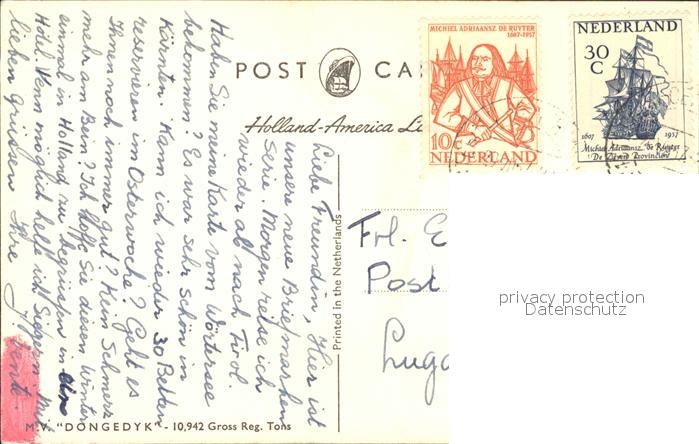 POST CA
Holland-America Li
MICHIEL ADRIAANSZ. DE RUYTER
1607-1957
10C
NEDERLAND
NEDERLAND
30
C
1607 1957
Michiel Adriaansz. de Ruyter
De Zeven Provinciën
Liebe Freundin, Hier ist
unsere neue Briefmarken
serie. Morgen reise ich
wieder ab nach Tirol.
Haben Sie meine Karte vom Wörtersee
bekommen? Es war sehr schön in
Kärnten. Kann ich wieder 30 Betten
reservieren im Osterwoche? Geht es
Ihnen noch immer gut? Kein Schmerz
mehr am Bein? Ich hoffe Sie diesen Winter
einmal in Holland zu begrüssen in
Hotel. Wenn möglich helfe ich
lieben Grüssen Ihre
Printed in the Netherlands
Frl. E
Post
Luga
privacy protection
Datenschutz
M.V. "DONGEDYK" - 10,942 Gross Reg. Tons